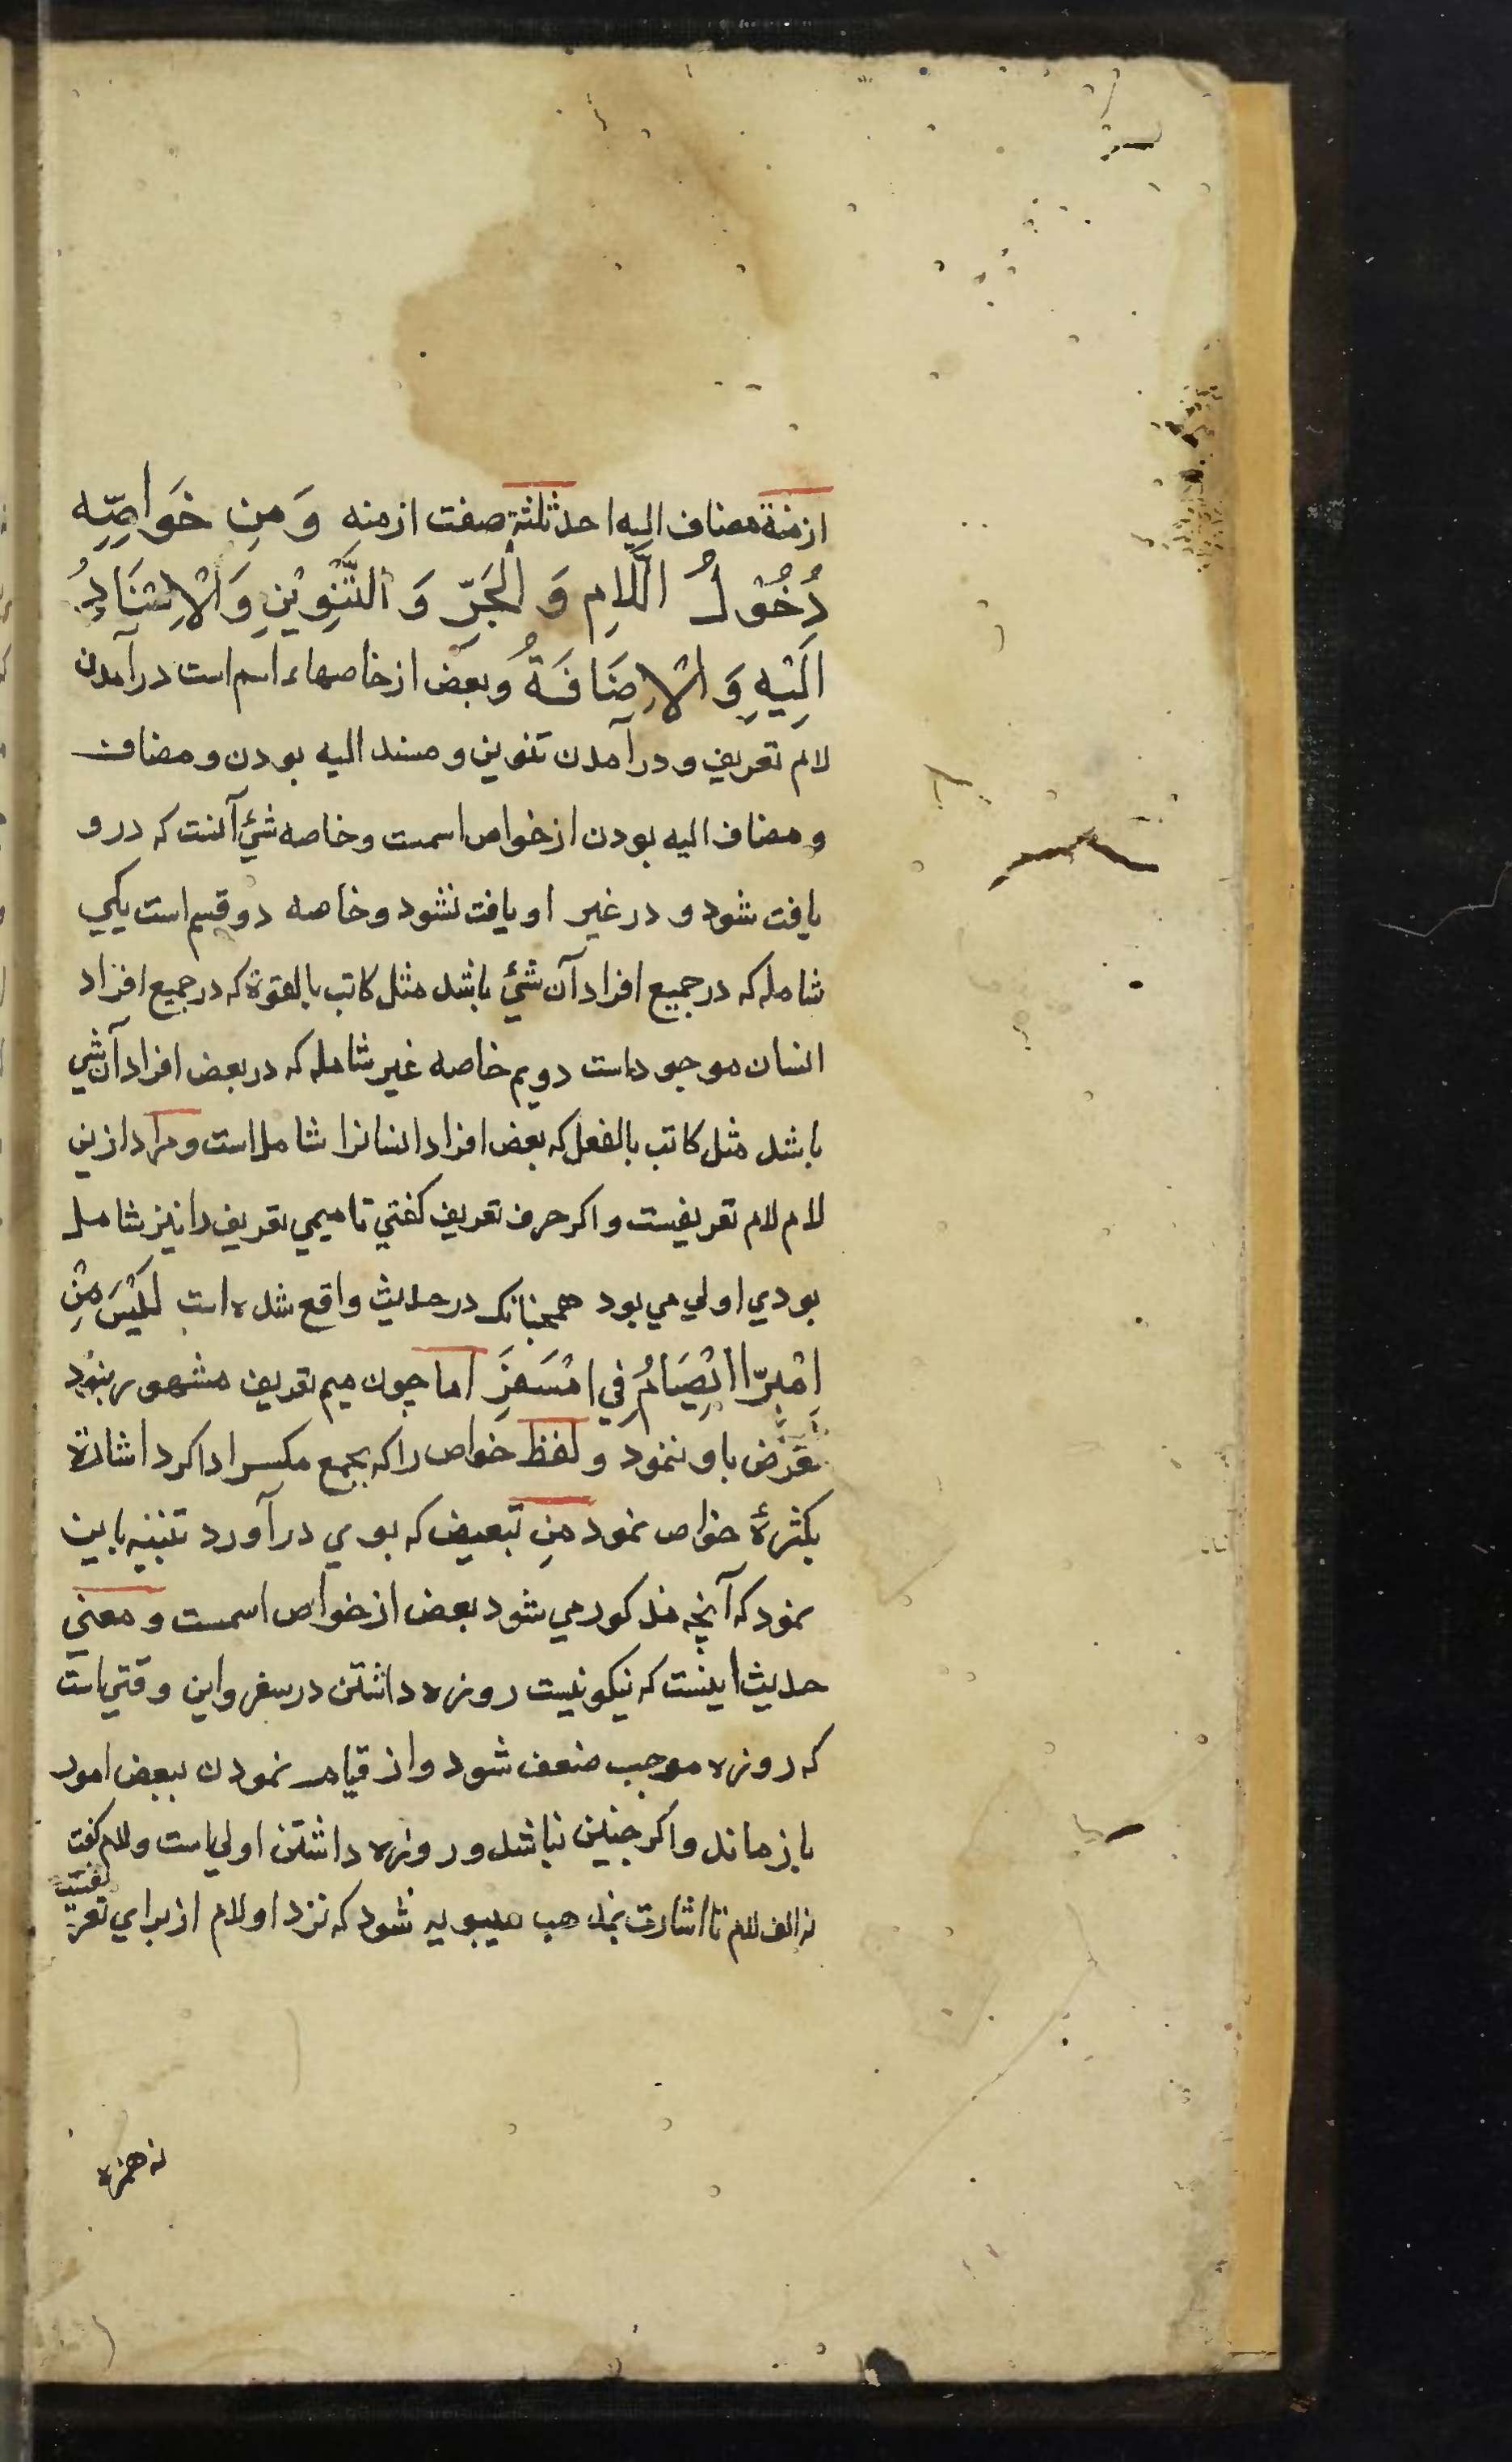 ازمنة مضاف اليه احد ثلثة صفت ازمنه وَمِن خَوَاصِّهِ
دُخُوْلُ اللَّامِ وَ الْجَرِّ وَ التَّنْوِيْنِ وَالْاِسْنَادُ
اِلَيْهِ وَ الْاِضَافَةُ وبعض از خاصهاء اسم است درآمدن
لام تعريف و درآمدن تنوين و مسند اليه بودن و مضاف
و مضاف اليه بودن از خواص اسمست و خاصه شئ آنست كه درو
يافت شود و در غير او يافت نشود و خاصه دو قسم است يكي
شامله كه در جميع افراد آن شئ باشد مثل كاتب بالقوة كه در جميع افراد
انسان موجود است دويم خاصه غير شامله كه در بعض افراد آن شي
باشد مثل كاتب بالفعل كه بعض افراد انسانرا شامل است و مراد ازين
لام لام تعريفست و اكر حرف تعريف كفتي تا ميمي تعريف را نيز شامل
بودي اولي مي بود همچنانك در حديث واقع شده است لَيْسَ مِنْ
اِمْبِرّ اامْصِيَامُ فِي امْسَفَرِ اما چون ميم تعريف مشهور نبود
تعرض باو ننمود و لفظ خواص را كه بجمع مكسر ادا كرد اشارة
بكثرة خواص نمود مِن تبعيض كه بوي درآورد تنبيه باين
نمود كه آنچه مذكور مي شود بعض از خواص اسمست و معني
حديث اينست كه نيكو نيست روزه داشتن در سفر و اين وقتي است
كه روزه موجب ضعف شود و از قيام نمودن ببعض امور
باز ماند و اكر چنين نباشد و روزه داشتن اولي است و لام كفت
نه الف لام تا اشارت بمذهب سيبويه شود كه نزد او لام از براي تعريفست
نه همزه